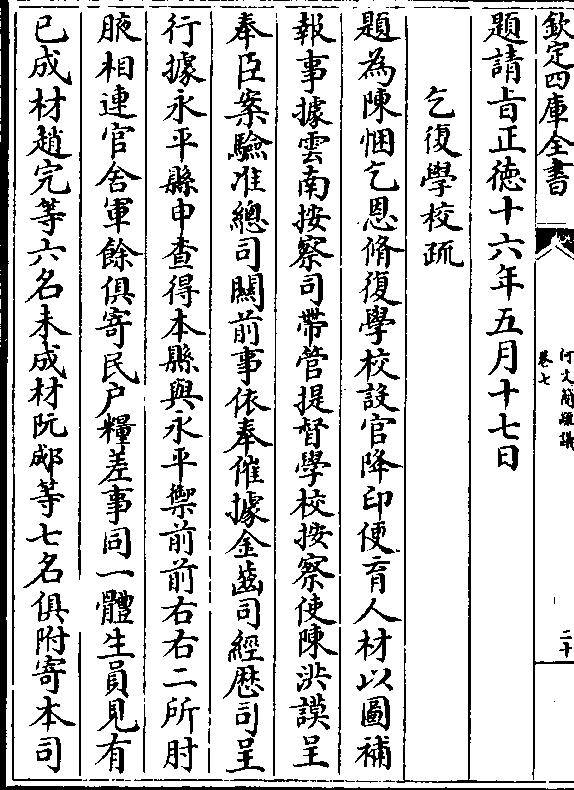 欽定四庫全書
何文簡疏議
卷七
二十
題請㫖正徳十六年五月十七日
乞復學校疏
題為陳悃乞恩脩復學校設官降印便育人材以圖補
報事據雲南按察司帶管提督學校按察使陳洪謨呈
奉臣案驗准總司闗前事依奉催據金齒司經歴司呈
行據永平縣申查得本縣與永平禦前前右右二所肘
腋相連官舍軍餘俱寄民户糧差事同一體生員見有
已成材趙完等六名未成材阮郕等七名俱附寄本司